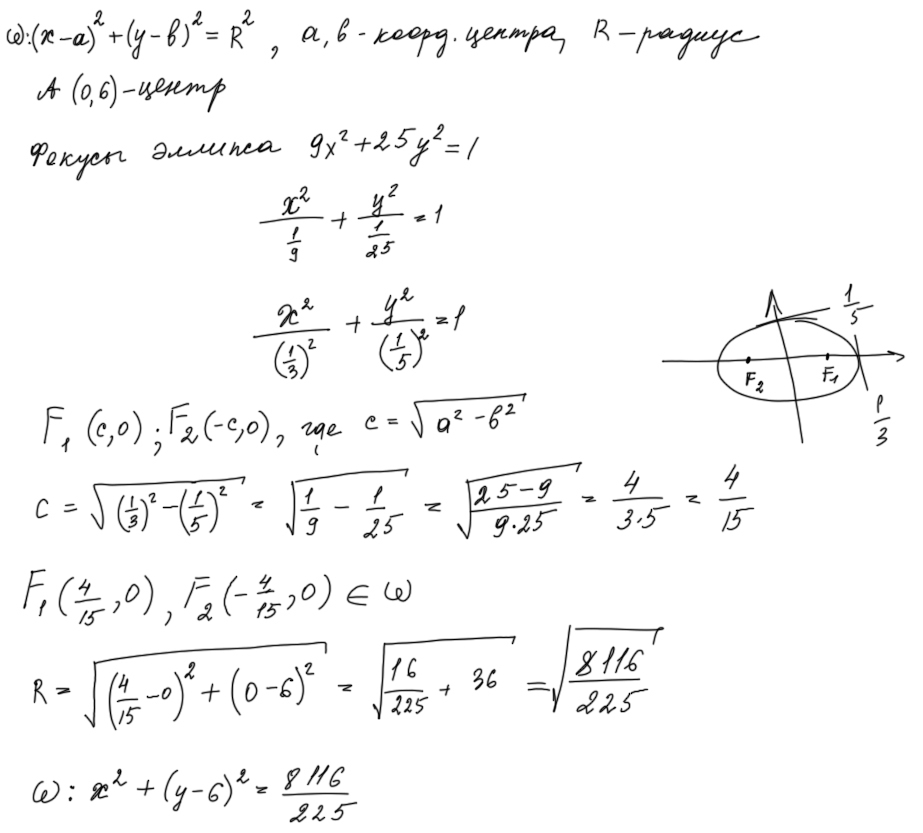 ω: (x – a)² + (y – в)² = R², a, в - коорд. центра, R – радиус
A (0, 6) – центр
Фокусы эллипса 9x² + 25y² = 1
x²/(1/9) + y²/(1/25) = 1
x²/(1/3)² + y²/(1/5)² = 1
1/5
F₂ F₁
1/3
F₁ (c, 0); F₂ (-c, 0), где c = √(a² – в²)
c = √((1/3)² – (1/5)²) = √(1/9 – 1/25) = √((25 – 9)/(9·25)) = 4/(3·5) = 4/15
F₁ (4/15, 0), F₂ (-4/15, 0) ∈ ω
R = √((4/15 – 0)² + (0 – 6)²) = √(16/225 + 36) = √(8116/225)
ω: x² + (y – 6)² = 8116/225